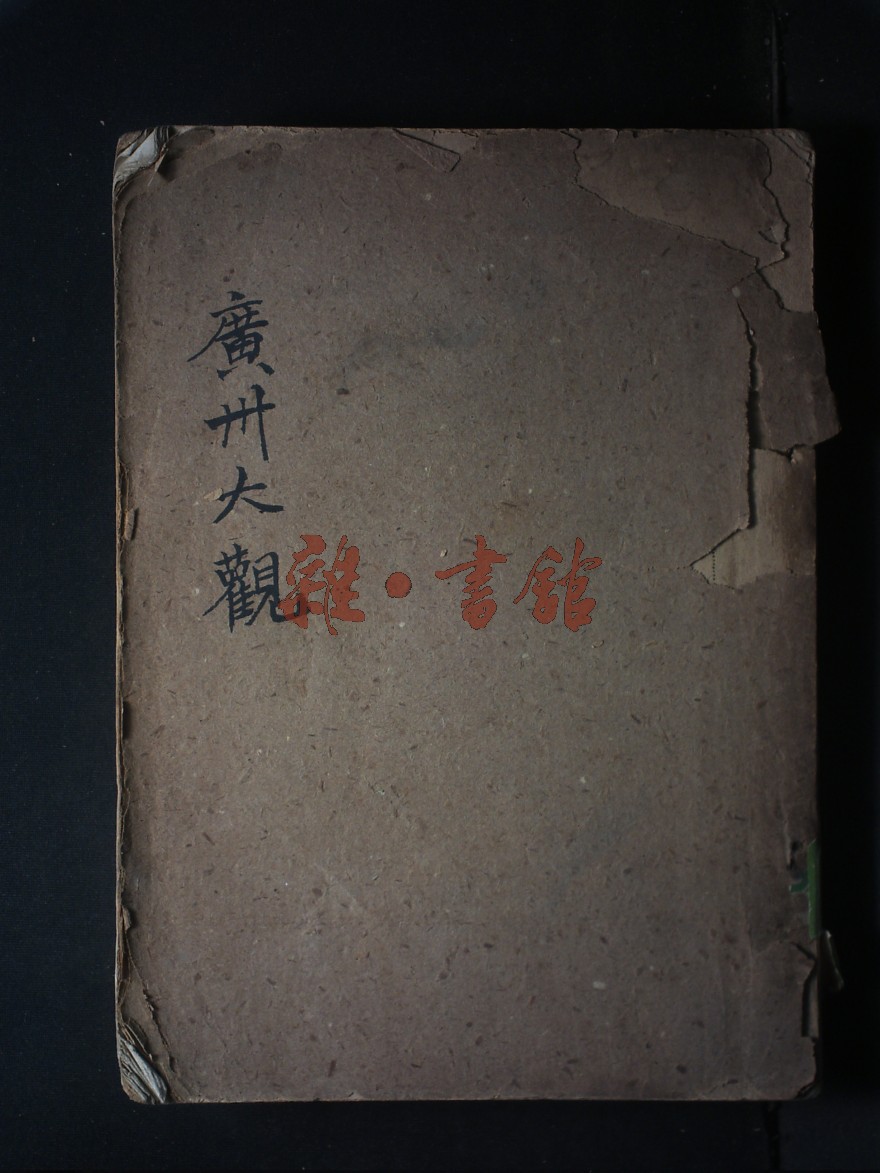 廣州大觀
雜·書館